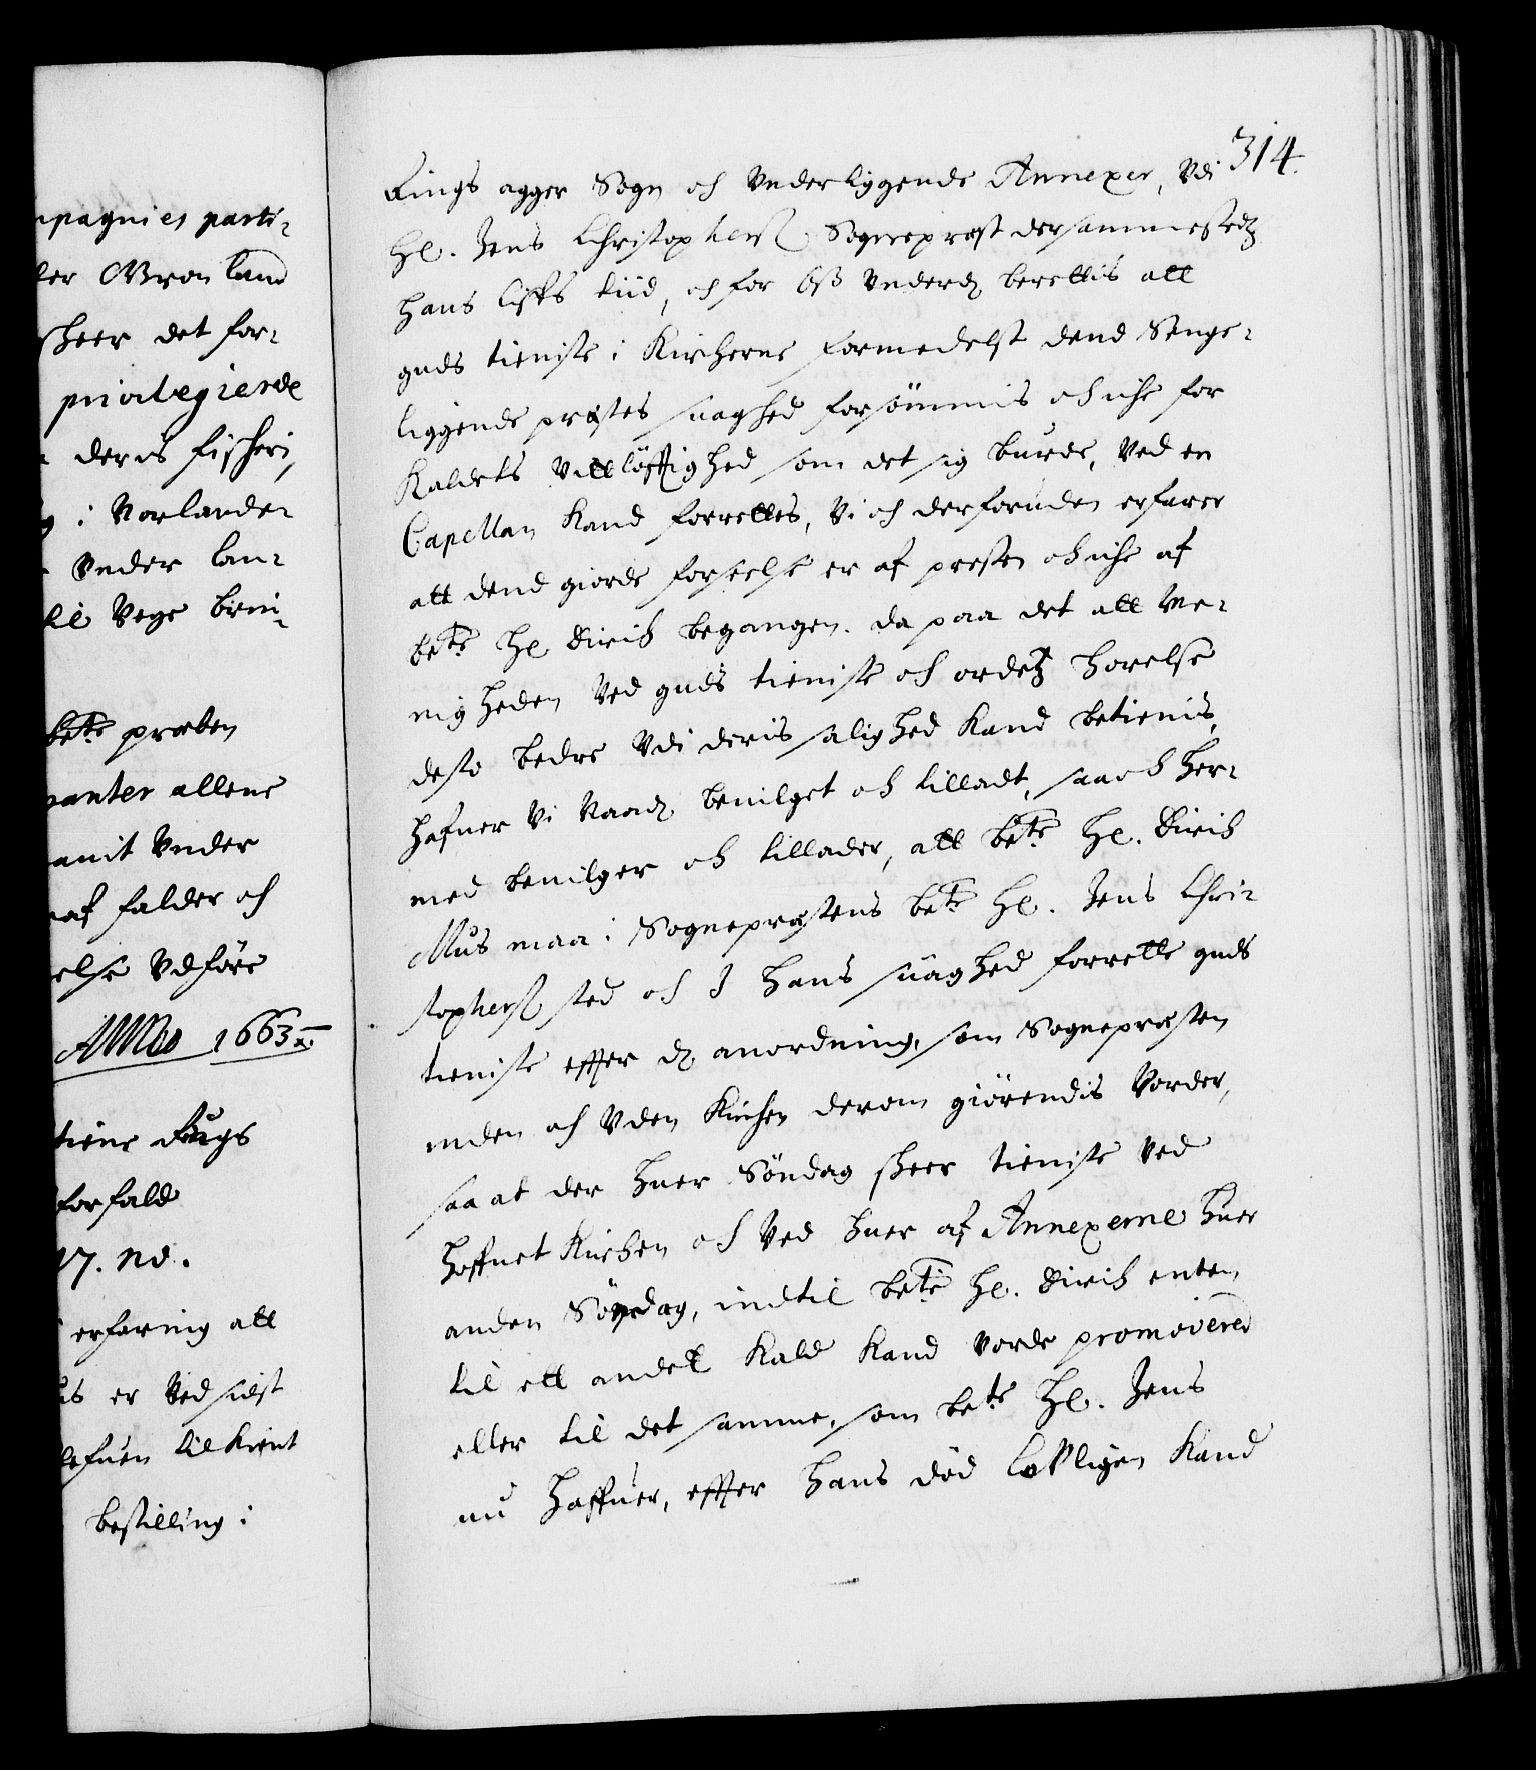 mpagnies parti-
ller Grønland
skeer det for-
privilegierede
deris fischeri
i Norlande-
under lan-
til Vege brin-
bete. præben
panter allene
amit Under
af falder och
else Udføre
1663
tiene Dings
forfald
17. no.
erfaring att
us er Ved sidst
lefuen tilkient
bestilling i
314.
Rings agger Sogn och Underliggende Annexer, Udi
Hr. Jens Christophers. Sogneprest dersammestedz
hans liffs tiid, och for Oss Underd. berettis att
guds tieniste i Kirckerne formedelst dend Senge-
liggende præstes suaghed forsömmis och iche for
Kaldets Vittlöfftighed som det sig burde, Ved en
Capellan Kand forrettes, Vi och derforuden erfarer
att dend giorde forseelse er af presten och iche af
bete. Hr. Dirich begangen. da paa det att Me-
nigheden Ved guds tieniste och ordetz hörelse
desto bedre Udi deris salighed Kand betienis,
hafuer Vi Naad. beuilget och tilladt, saa och her-
med beuilger och tillader, att bete. Hr. Dirich
Mus maa i Sogneprestens bete. Hr. Jens Chri-
stophers. sted och I hans suaghed forrette guds
tieniste effter d. anordning, som Sognepresten
inden och Uden Kirchen derom giörendis Vorder,
saa at der huer Söndag skeer tieniste Ved
Hoffuet Kirchen och Ved huer af Annexerne huer
anden Söndag, indtil bete. Hr. Dirich enten
til ett andet Kald Kand Vorde promovered
eller til det samme, som bete. Hr. Jens
nu haffuer, effter hans död lovligen Kand